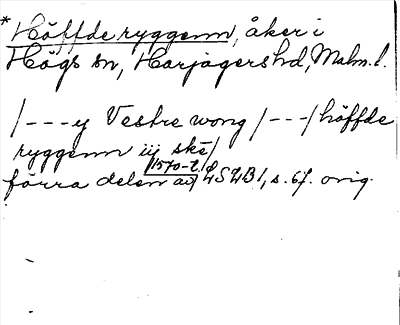 *Höffde ryggenn, åker i
Högs sn, Harjagers hd, Malm. l.
/---y Vestre wong /---/ höffde
ryggenn iij ske/
förra delen av 1570-t./ LSLB 1, s. 67. orig.